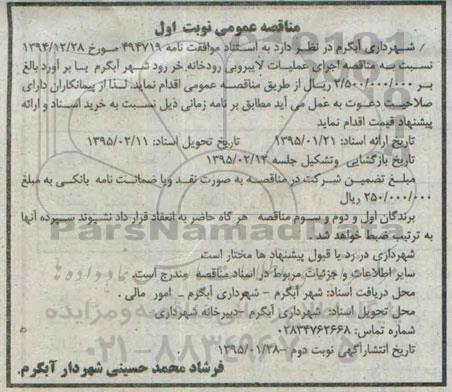 مناقصه عمومی نوبت اول
شهرداری آبگرم در نظر دارد به استناد موافقت نامه ۴۹۴۷۱۹ مورخ ۱۳۹۴/۱۲/۲۸
نسبت به مناقصه اجرای عملیات لایروبی رودخانه خر رود شهر آبگرم با بر آورد بالغ
بر ۲/۵۰۰/۰۰۰/۰۰۰ ریال از طریق مناقصه عمومی اقدام نماید. لذا از پیمانکاران دارای
صلاحیت دعوت به عمل می آید مطابق بر نامه زمانی ذیل نسبت به خرید اسناد و ارائه
پیشنهاد قیمت اقدام نماید
تاریخ ارائه اسناد: ۱۳۹۵/۰۱/۲۱ تاریخ تحویل اسناد: ۱۳۹۵/۰۲/۱۱
تاریخ بازگشایی وتشکیل جلسه ۱۳۹۵/۰۲/۱۲
مبلغ تضمین شرکت در مناقصه به صورت نقد ویا ضمانت نامه بانکی به مبلغ
۲۵۰/۰۰۰/۰۰۰ ریال
برندگان اول و دوم و سوم مناقصه هر گاه حاضر به انعقاد قرار داد نشوند سپرده آنها
به ترتیب ضبط خواهد شد.
شهرداری در رد یا قبول پیشنهاد ها مختار است
سایر اطلاعات و جزئیات مربوط در اسناد مناقصه مندرج است.
محل دریافت اسناد: شهر آبگرم – شهرداری آبگرم – امور مالی .
محل تحویل اسناد: شهرداری آبگرم – دبیرخانه شهرداری
شماره تماس: ۰۲۸۳۴۷۶۲۶۶۸
تاریخ انتشارآگهی نوبت دوم –۱۳۹۵/۰۱/۲۸
فرشاد محمد حسینی شهردار آبگرم.
ParsNamadData